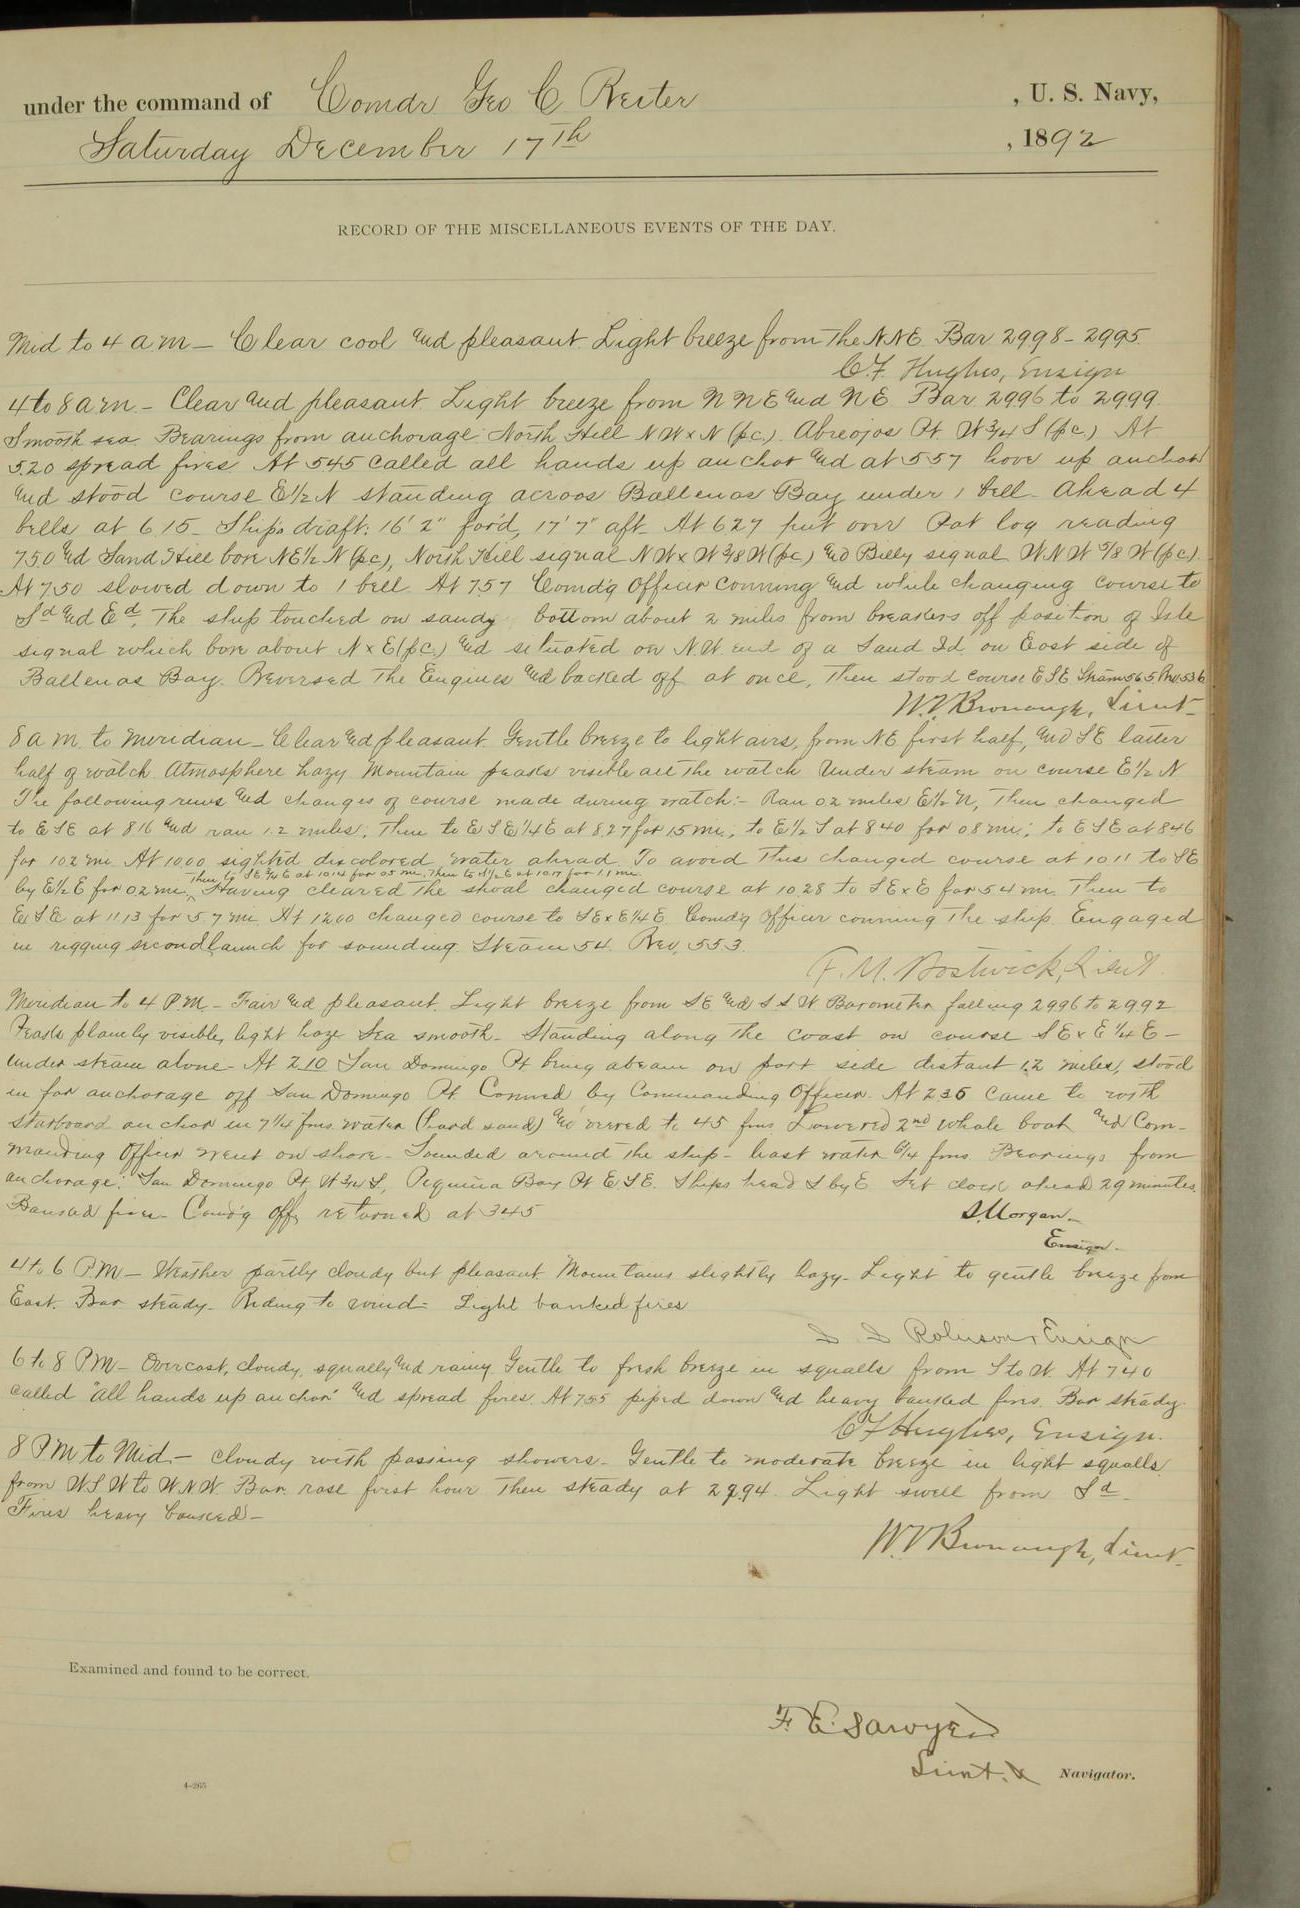 under the command of Comdr Geo C Reiter , U. S. Navy,
Saturday December 17th , 1892
RECORD OF THE MISCELLANEOUS EVENTS OF THE DAY.
Mid to 4 a m – Clear cool and pleasant. Light breeze from the NNE. Bar 29.98 – 29.95.
C.F. Hughes, Ensign
4 to 8 a m. – Clear and pleasant. Light breeze from N N E and N E. Bar. 29.96 to 29.99.
Smooth sea. Bearings from anchorage North Hill N W x N (p.c.) Abreojos Pt. W 3/4 S (p c) At
5.20 spread fires At 5 45 called all hands up anchor and at 5 57 hove up anchor
and stood course E 1/2 N standing across Ballenas Bay under 1 bell. Ahead 4
bells at 6 15. Ships draft: 16' 2" for'd, 17' 7" aft. At 6 27 put over Pat log reading
75.0 and Sand Hill bore NE 1/2 N (p.c), North Hill signal N W x W 3/8 W (pc) and Billy signal W N W 5/8 W (p c).
At 7.50 slowed down to 1 bell. At 7 57 Comd'g Officer conning and while changing course to
Sd and Ed, the ship touched on sandy bottom about 2 miles from breakers off position of Isle
signal which bore about N x E (p.c.) and situated on N.W end of a Sand Id. on East side of
Ballenas Bay. Reversed the Engines and backed off at once, then stood course E S E Steam 56.5 Rev 53.6
W.V. Bronaugh, Lieut –
8 a m. to Meridian – Clear and pleasant. Gentle breeze to light airs, from NE first half, and SE latter
half of watch. Atmosphere hazy. Mountain peaks visible all the watch. Under steam on course E 1/2 N
The following runs and changes of course made during watch:– Ran 0.2 miles E 1/2 N, Then changed
to E S E at 8 16 and ran 1.2 miles; Then to E S E 1/4 E at 8.27 for 1.5 mi; to E 1/2 S at 8 40 for 0.8 mi; to E S E at 8 46
for 10.2 mi. At 10 00 sighted discolored water ahead. To avoid this changed course at 10 11 to SE
Then to SE 3/4 E at 10.14 for 0.5 mi. Then to S 1/2 E at 10.17 for 1.1 mi.
by E 1/2 E for 0.2 mi. Having cleared the shoal changed course at 10.28 to S E x E for 5.4 mi. Then to
E S E at 11 13 for 5.7 mi. At 12 00 changed course to S E x E 1/4 E. Comd'g Officer conning the ship. Engaged
in rigging second launch for sounding. Steam 54. Rev, 55.3.
F. M. Bostwick, Lieut.
Meridian to 4 P.M. – Fair and pleasant. Light breeze from S E and S S W. Barometer falling 29.96 to 29.92
Peaks plainly visible, light haze. Sea smooth. Standing along the coast on course S E x E 1/4 E –
under steam alone. At 2.10 San Domingo Pt being abeam on port side distant 1.2 miles, stood
in for anchorage off San Domingo Pt Conned by Commanding Officer. At 2 35 came to with
starboard anchor in 7 1/4 fms. water (hard sand) and veered to 45 fms. Lowered 2nd whale boat and Com-
manding Officer went on shore. Sounded around the ship – least water 6 1/4 fms. Bearings from
anchorage: San Domingo Pt. W 3/4 S, Pequina Bay Pt E S E. Ships head S by E. Set clock ahead 29 minutes.
Banked fires – Comd'g off. returned at 3 45
S. Morgan –
Ensign –
4 to 6 P.M – Weather partly cloudy but pleasant. Mountains slightly hazy. Light to gentle breeze from
East. Bar steady. Riding to wind – Light banked fires
Robinson, Ensign
6 to 8 P.M – Overcast, cloudy, squally and rainy. Gentle to fresh breeze in squalls from S to W. At 7 40
called "all hands up anchor" and spread fires. At 7 55 piped down and heavy banked fires. Bar steady.
C F Hughes, Ensign.
8 P M to Mid. – Cloudy with passing showers. Gentle to moderate breeze in light squalls
from W S W to W N W. Bar. rose first hour then steady at 29.94. Light swell from Sd.
Fires heavy banked –
W.V Bronaugh, Lieut –
Examined and found to be correct.
F. E. Sawyer
Lieut. & Navigator.
4–265